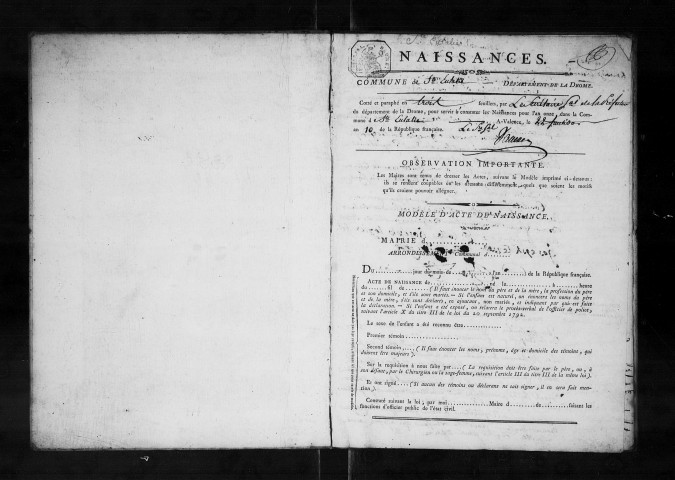 NAISSANCES.
COMMUNE de Ste Eulalie DÉPARTEMENT DE LA DROME.
Cotté et paraphé en trois feuillets, par Le Secrétaire gal de la Préfecture
du département de la Drome, pour servir à constater les Naissances pour l'an onze, dans la Com-
mune d Ste Eulalie A Valence, le
an 10 de la République française.
OBSERVATION IMPORTANTE.
Les Maires sont tenus de dresser les Actes, suivant le Modèle imprimé ci-dessous:
ils se rendent coupables en les dressant différemment, quels que soient les motifs
qu'ils croient pouvoir alléguer.
MODÈLE D'ACTE DE NAISSANCE.
MAIRIE d
ARRONDISSEMENT Communal d
Du jour du mois de l'an de la République française.
ACTE DE NAISSANCE de né le à heure
du fil de (Il faut énoncer le nom du père et de la mère, la profession du père
et son domicile, et s'ils sont mariés. — Si l'enfant est naturel, on énoncera les noms du père
et de la mère, s'ils sont déclarés, en ajoutant, non mariés, et indiquant par qui est faite
la déclaration. — Si l'enfant a été exposé, on relatera le procès-verbal de l'officier de police,
suivant l'article X du titre III de la loi du 20 septembre 1792.
Le sexe de l'enfant a été reconnu être
Premier témoin
Second témoin (Il faut énoncer les noms, prénoms, âge et domicile des témoins, qui
doivent être majeurs).
Sur la réquisition à nous faite par (La réquisition doit être faite par le père, ou, à
son défaut, par le Chirurgien ou la sage-femme, suivant l'article III du titre III de la même loi).
Et ont signé (Si aucun des témoins ou déclarans ne sait signer, il en sera fait men-
tion.)
Constaté suivant la loi, par moi Maire d faisant les
fonctions d'officier public de l'état civil.